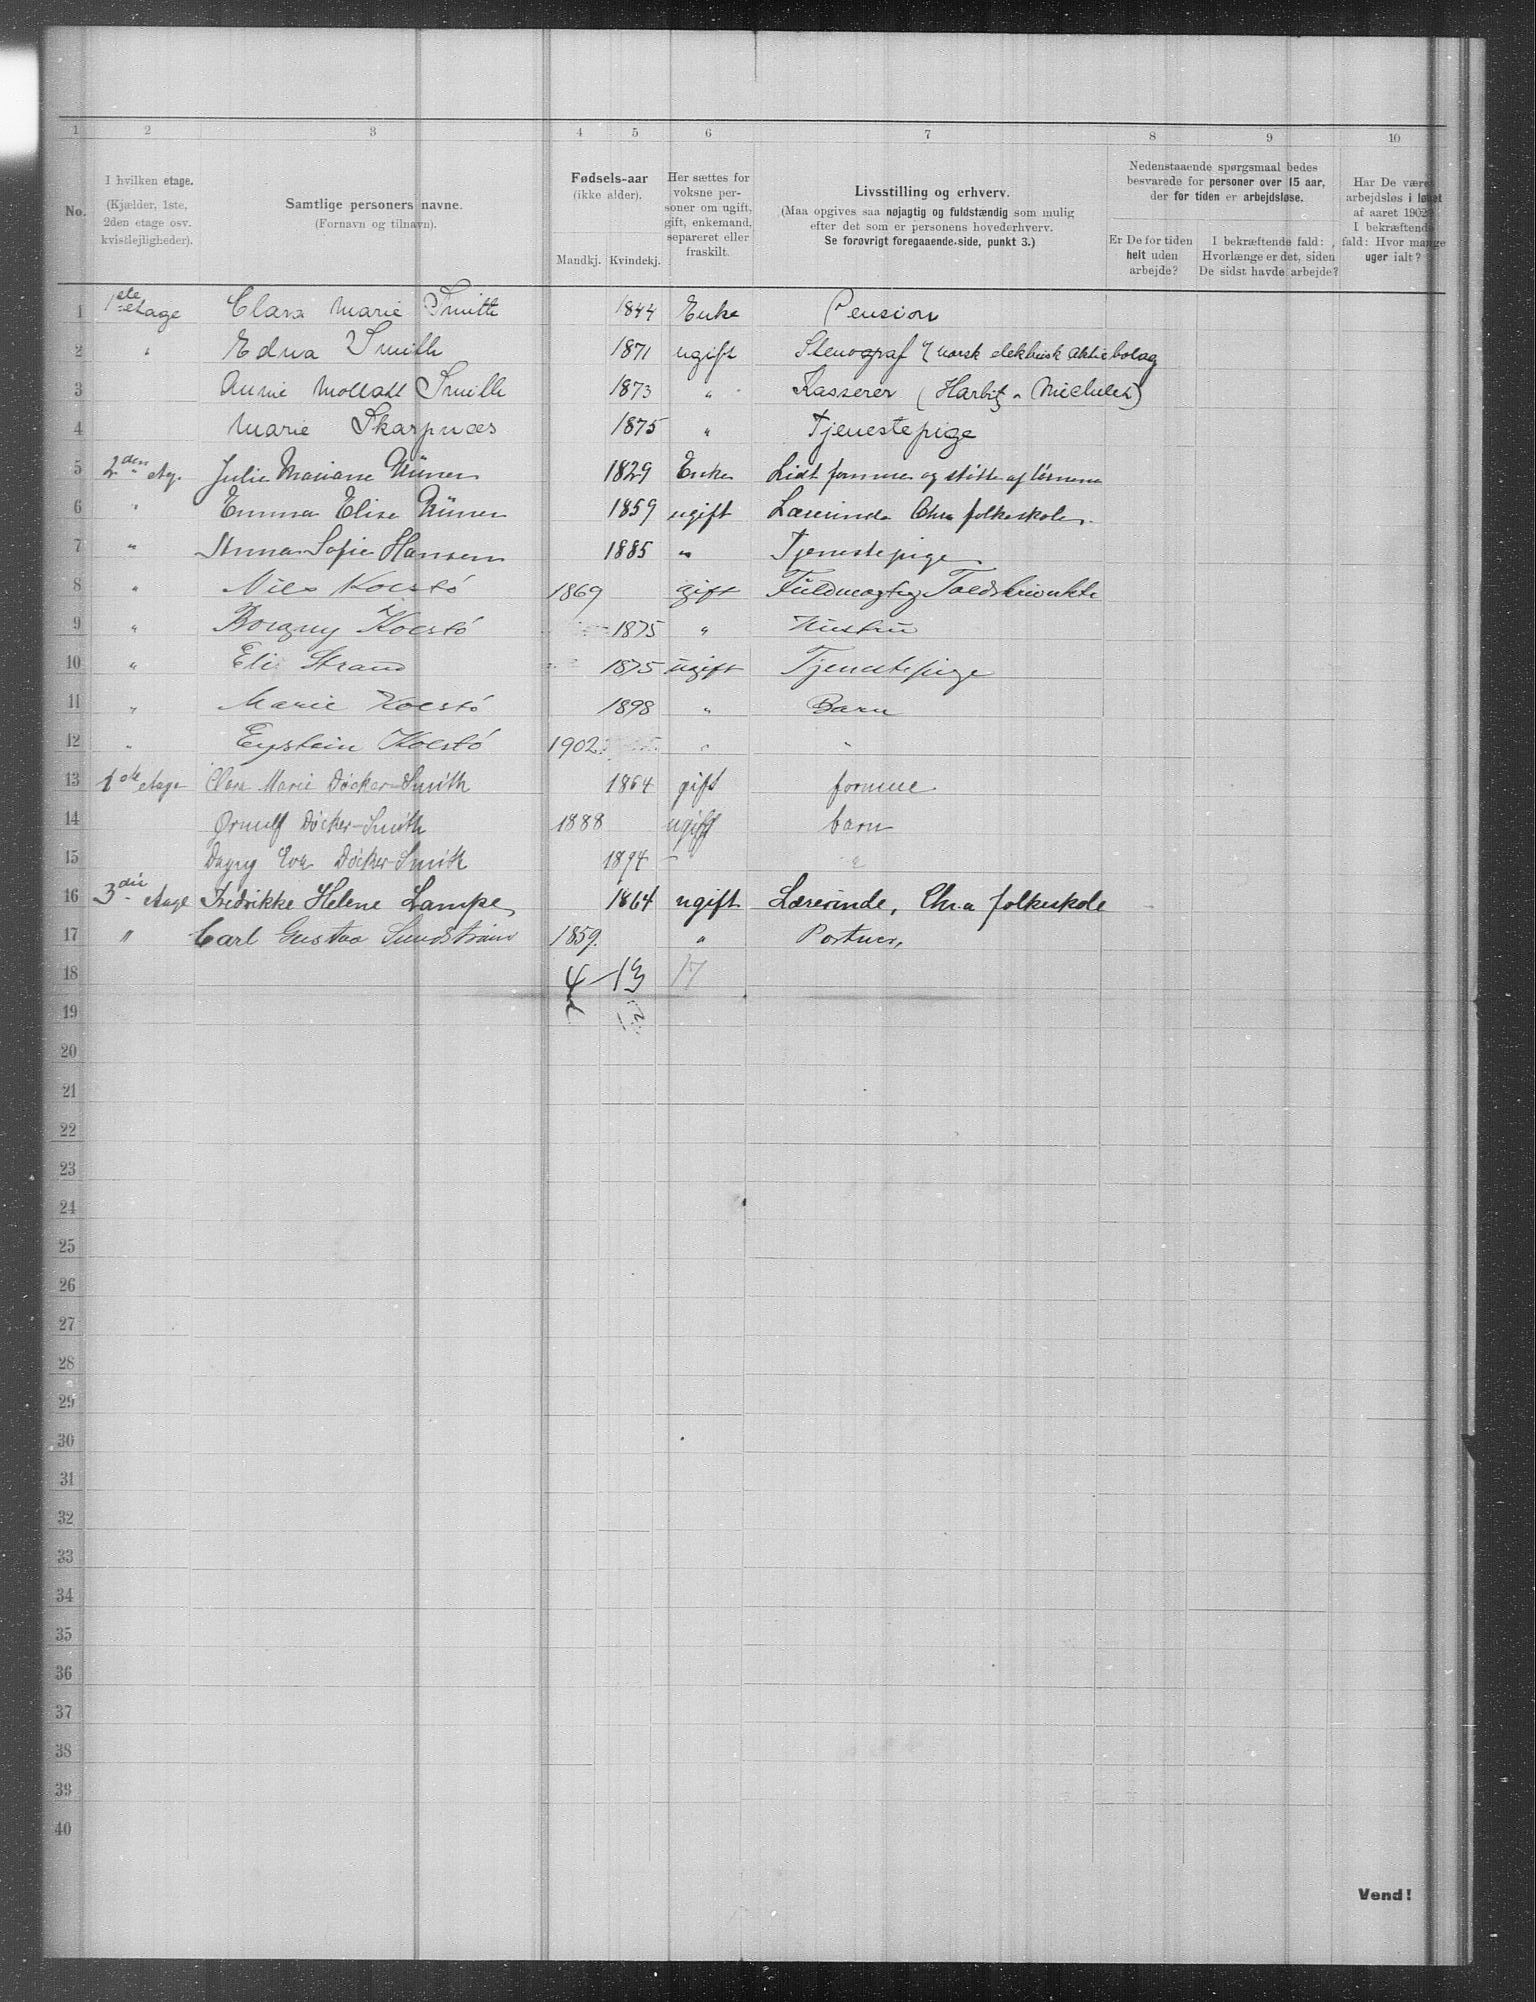 1 2 3 4 5 6 7 8 9 10
No.
I hvilken etage.
(Kjælder, 1ste,
2den etage osv.
kvistlejligheder).
Samtlige personers navne.
(Fornavn og tilnavn).
Fødsels-aar
(ikke alder).
Mandkj. Kvindekj.
Her sættes for
voksne per-
soner om ugift,
gift, enkemand,
separeret eller
fraskilt.
Livsstilling og erhverv.
(Maa opgives saa nøjagtig og fuldstændig som mulig
efter det som er personens hovederhverv.
Se forøvrigt foregaaende side, punkt 3.)
Nedenstaaende spørgsmaal bedes
besvarede for personer over 15 aar,
der for tiden er arbejdsløse.
Er De for tiden
helt uden
arbejde?
I bekræftende fald:
Hvorlænge er det, siden
De sidst havde arbejde?
Har De været
arbejdsløs i løbet
af aaret 1902?
I bekræftende
fald: Hvor mange
uger ialt?
1 1ste etage Clara Marie Smith 1844 Enke Pension
2 " Edna Smith 1871 ugift Stenograf norsk elektrisk Aktiebolag
3 Annie Smith 1873 " Kasserer (Harbitz
4 Marie Skarpnæs 1875 " Tjenestepige
5 2den etg. Julie Mariane 1829 Enke Lidt formue og støtte af
6 " Emma Elise 1859 ugift Lærerinde Chra folkeskole.
7 " Anna Sofie Hansen 1885 " Tjenestepige
8 " Nils Kolstø 1869 gift Fuldmægtig
9 " Borgny Kolstø 1875 " Hustru
10 " Eli Strand 1875 ugift Tjenestepige
11 " Marie Kolstø 1898 " Barn
12 " Eystein Kolstø 1902 " "
13 1ste etage Clara Marie Döcker-Smith 1864 gift formue
14 Ørnulf Döcker-Smith 1888 ugift barn
15 Dagny Eva Döcker-Smith 1894 " "
16 3die etage Fredrikke Helene Lampe 1864 ugift Lærerinde, Chra folkeskole
17 " Carl Gustav Sundstrøm 1859. " Portner,
18 4 13 17
19
20
21
22
23
24
25
26
27
28
29
30
31
32
33
34
35
36
37
38
39
40
Vend!